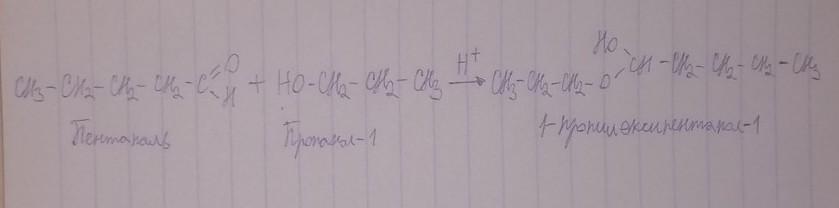 CH₃-CH₂-CH₂-CH₂-C=O H + HO-CH₂-CH₂-CH₃ H⁺ → CH₃-CH₂-CH₂-O HO CH-CH₂-CH₂-CH₂-CH₃
Пентаналь Пропанол-1 1-пропилоксипентанол-1